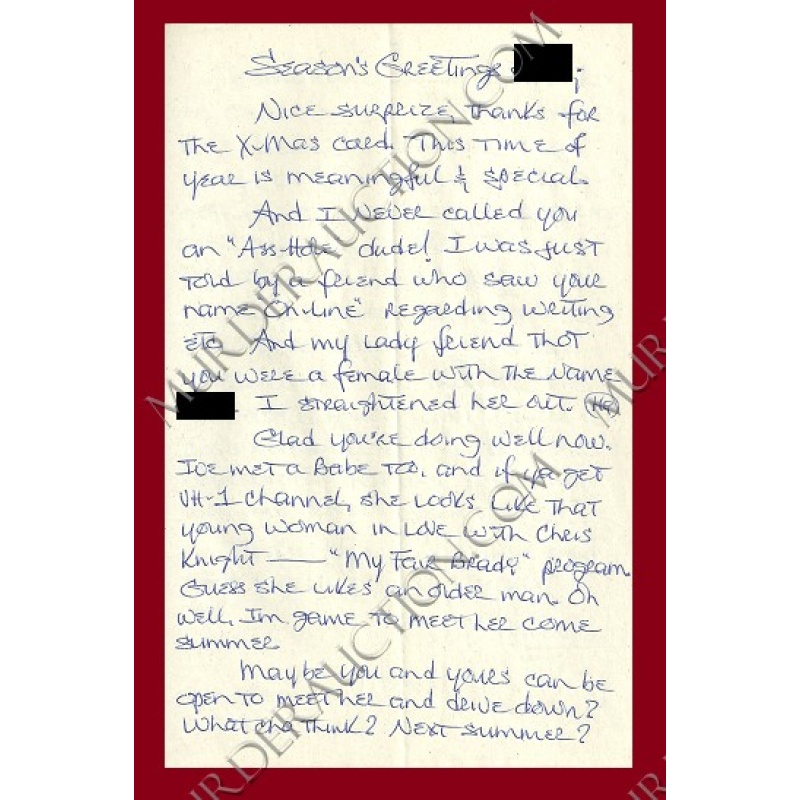 Season's Greetings ;
Nice surprize, thanks for
the X-Mas card. This time of
year is meaningful & special.
And I never called you
an "Ass-Hole" dude! I was just
told by a friend who saw your
name "on-Line" regarding writing
etc. And my lady friend thot
you were a female with the name
. I straightened her out. (Ha)
Glad you're doing well now.
I've met a Babe too, and if ya get
VH-1 channel, she looks like that
young woman in love with Chris
Knight — "My Fair Brady" program.
Guess she likes an older man. Oh
well, I'm game to meet her come
summer.
Maybe you and yours can be
open to meet her and drive down?
What cha think? Next summer?
MURDERAUCTION.COM
MURDERAUCTION.COM